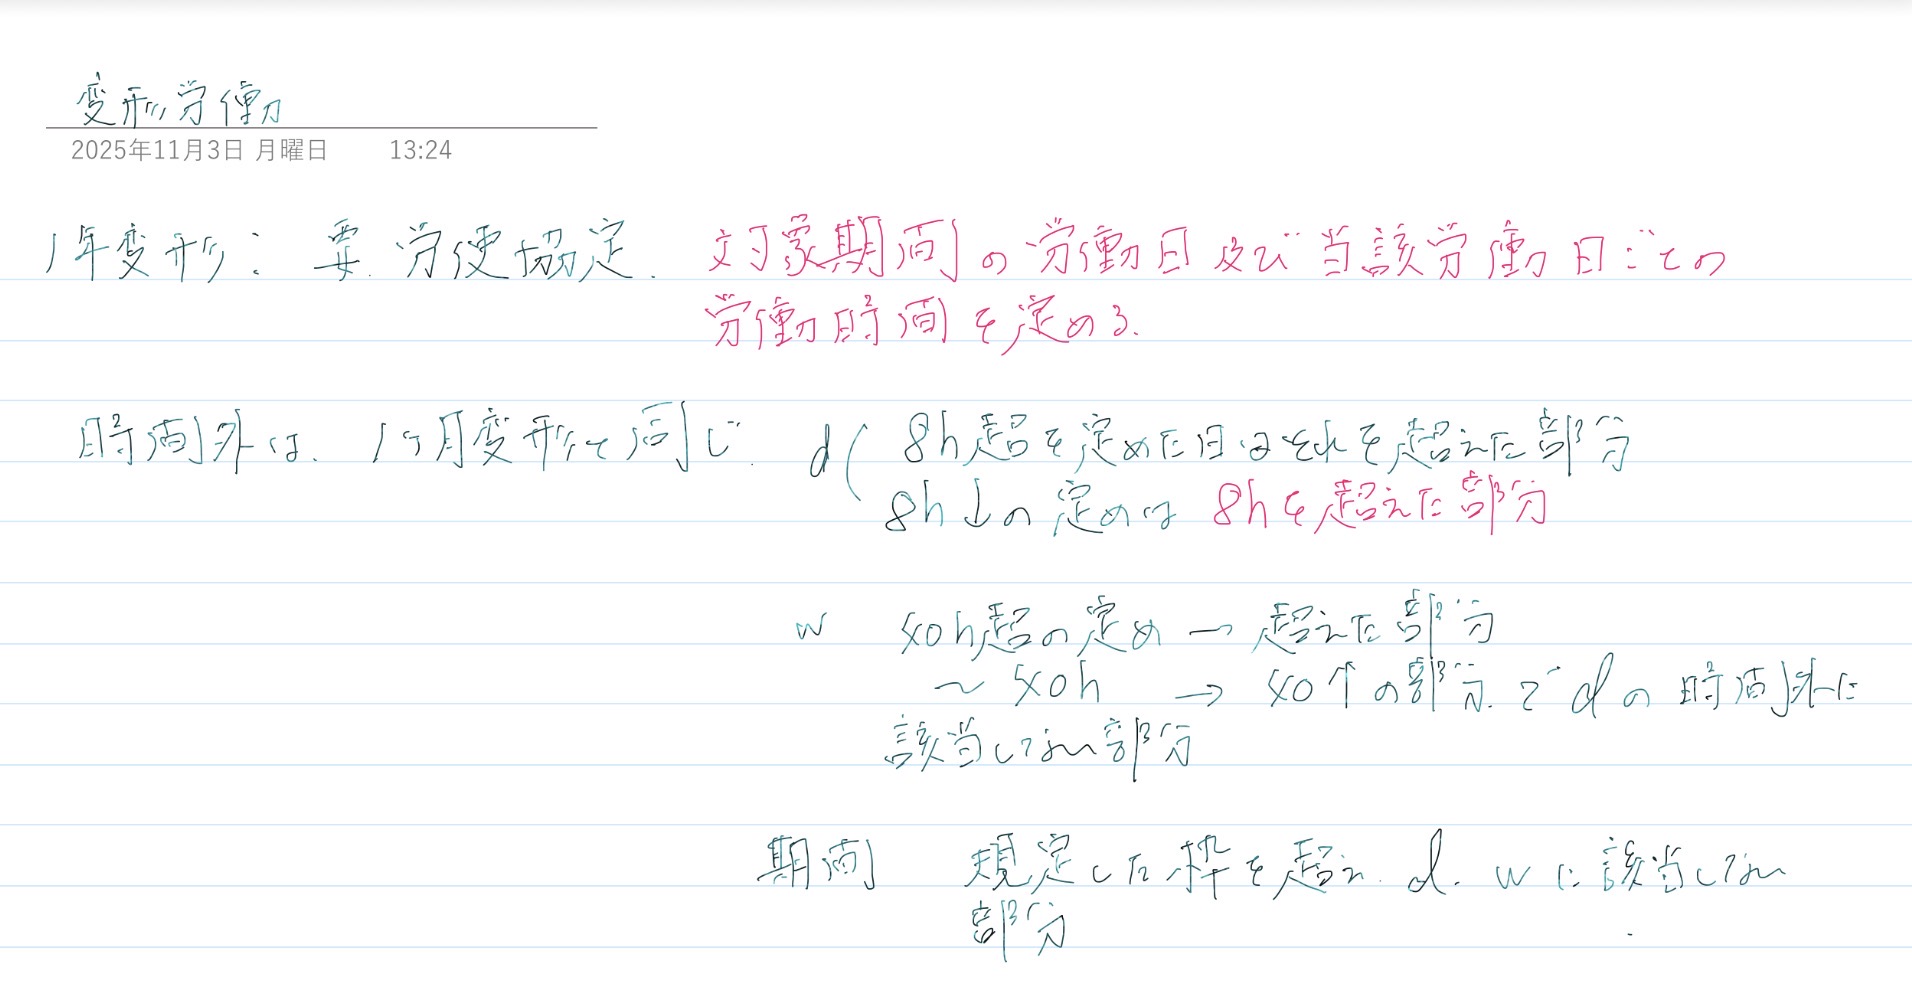 変形労働
2025年11月3日 月曜日 13:24
1年変形: 要.労使協定. 対象期間の労働日及び当該労働日ごとの
労働時間を定める.
時間外は、1ヶ月変形と同じ. d( 8h超を定めた日はそれを超えた部分
8h↓の定めは 8hを超えた部分
w 40h超の定め → 超えた部分
〜40h → 40↑の部分.でdの時間外に
該当してない部分
期間 規定した枠を超え. d. wに該当してない
部分